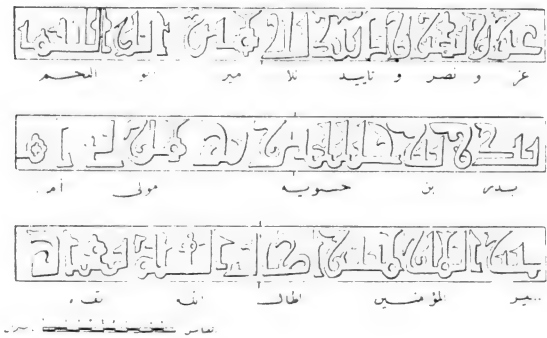 عز و نصر و تاييد للا مير ابو النجم
بدر بن حسويه مولى أمـ
ـير المؤمنين اطال الله بقاء
مقاس